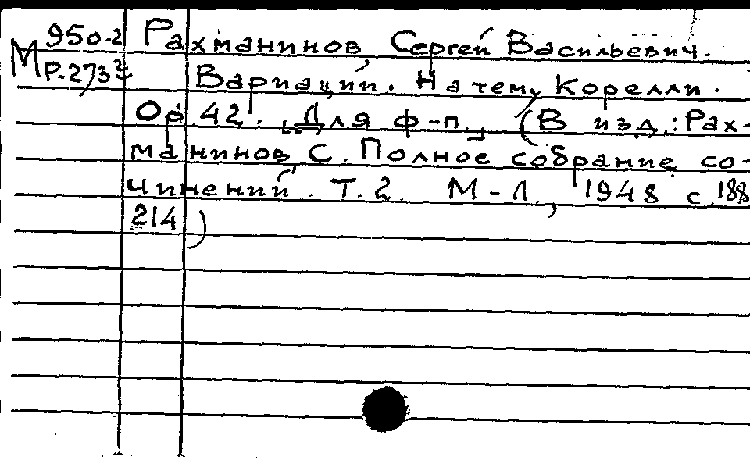 950-2 Рахманинов, Сергей Васильевич.
М Р-273 Вариации. На тему Корелли.
Ор. 42. Для ф-п. (В изд.: Рах-
манинов С. Полное собрание со-
чинений. Т.2. М-Л, 1948 с. 188
214)